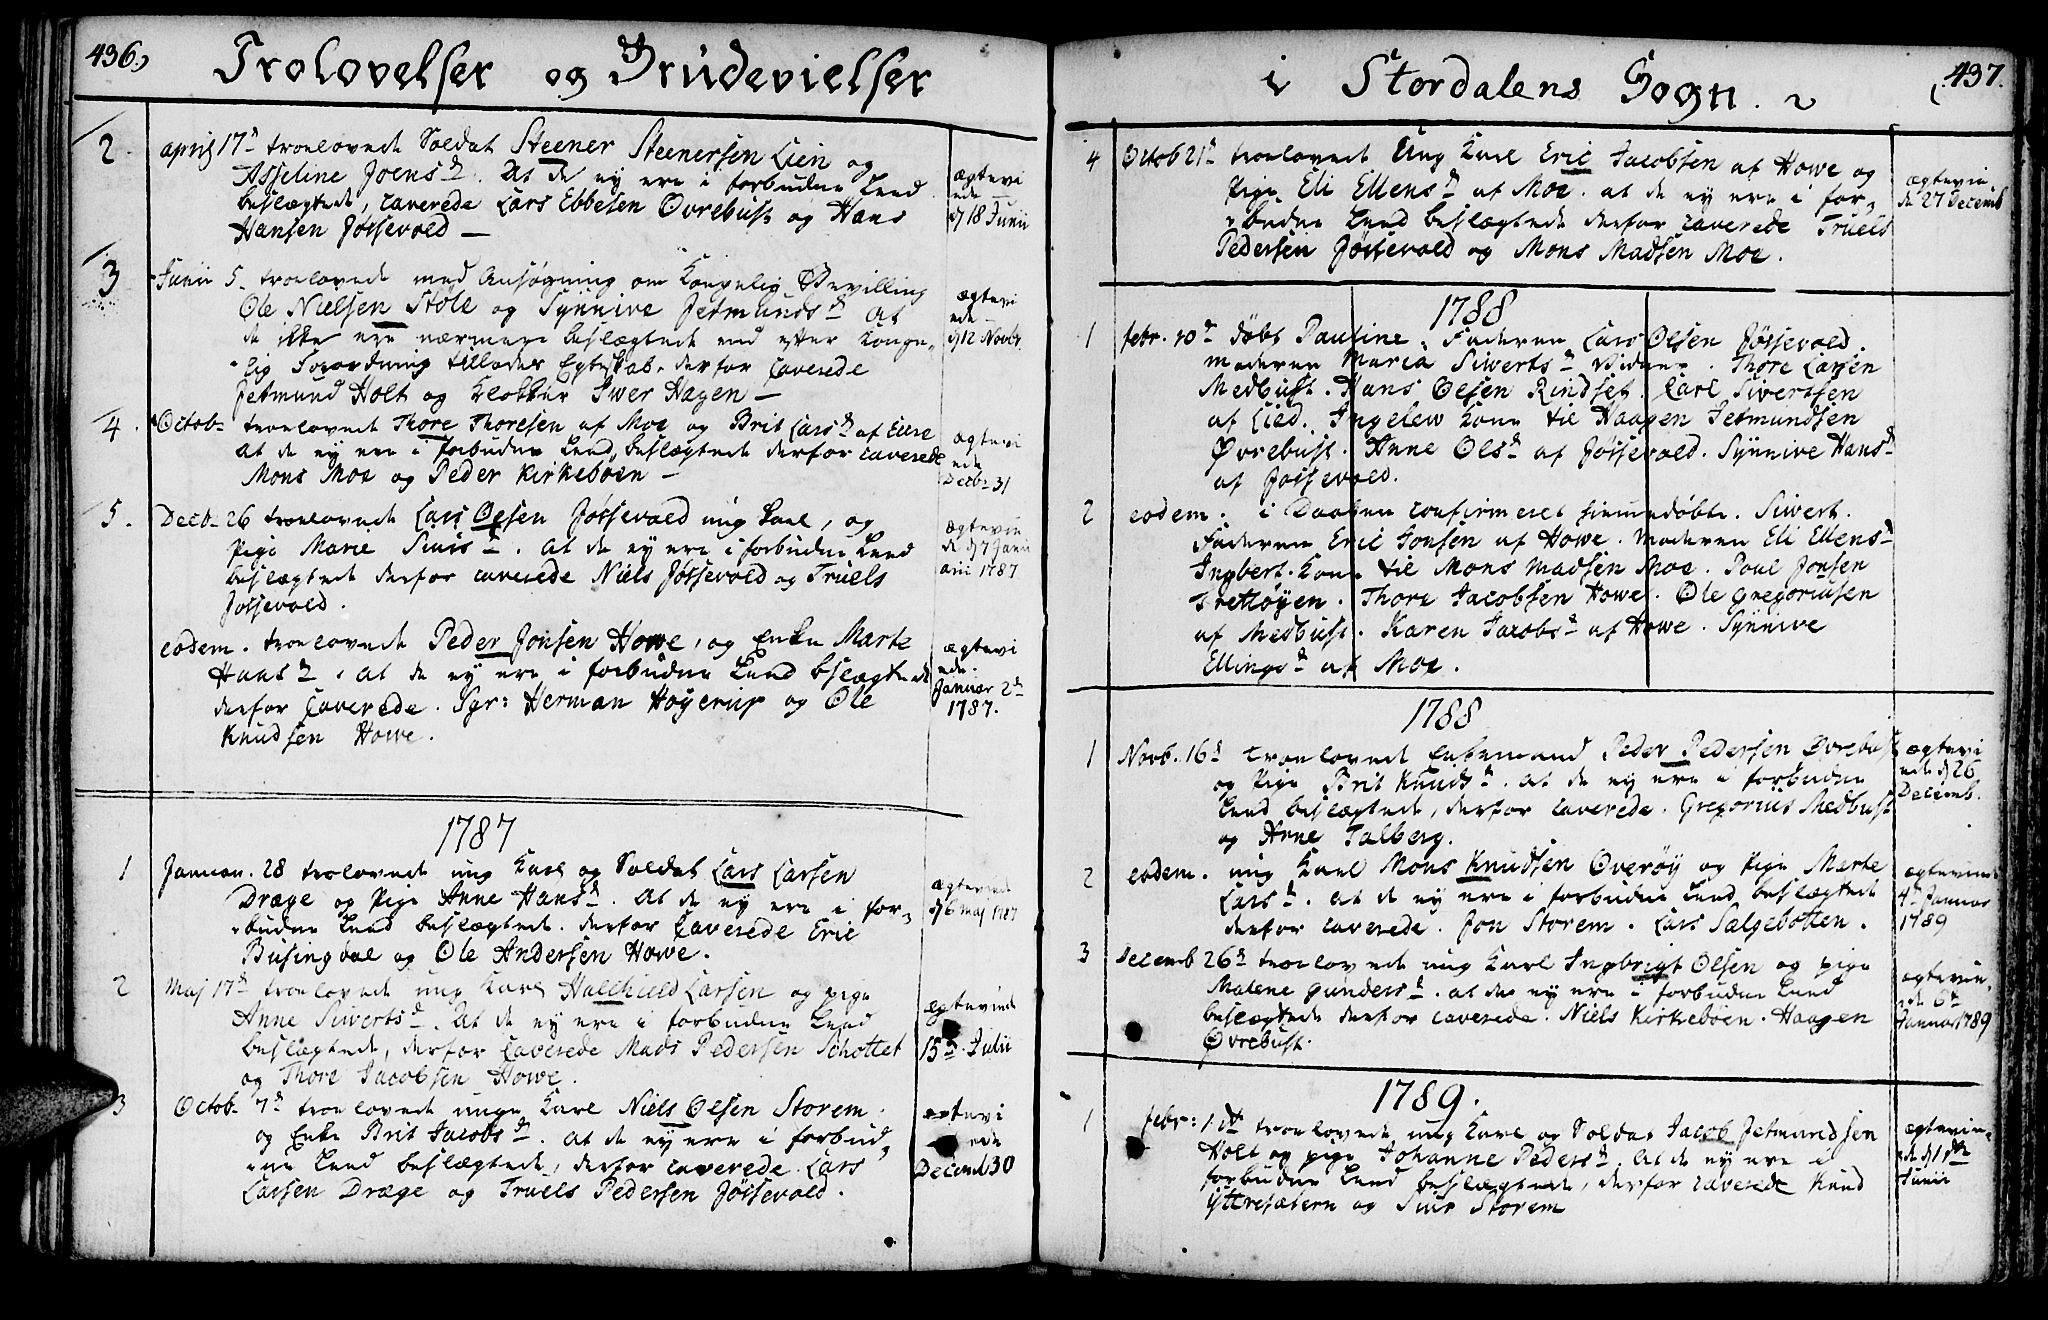 436.
Trolovelser og Brudevielser
2
april 17de troelovede Soldat Steener Steenersen Lien og
Asseline Joensd. At de ej ere i forbudne Leed
beslægtede, caverede Lars Ebbesen Øvrebust og Hans
Hansen Jøssevold —
ægtevi
ede
d 18 Junii
3
Junii 5. troelovede med Ansøgning om Kongelig Bevilling
Ole Nielsen Stole og Synnive Jetmundsd At
de ikke ere nærmere beslægtede end efter Konge-
lig Forordning tillades Egteskab, derfor caverede
Jetmund Holt og Klokker Iwer Hagen —
ægtevi
ede
d 12 Novbr.
4.
Octob- troelovede Thore Thoresen af Moe og Brit Larsd af
At de ej ere i forbudne Leed beslægtede derfor caverede
Mons Moe og Peder Kirkebøen —
ægtevi
ede
Decb- 31
5.
Decb- 26 troelovede Lars Olsen Jøssevold ung Karl, og
Pige Marie Siursd. At de ej ere i forbudne Leed
beslægtede derfor caverede Niels Jøssevold og Truels
Jøssevold.
ægtevie
de d 7 Janu
arii 1787
eodem. troelovede Peder Jonsen Howe, og Enke Marte
Hansd. At de ej ere i forbudne Leed beslægtede
derfor caverede. Sgr: Herman Høyerup og Ole
Knudsen Howe.
ægtevi
ede.
Januar 2d
1787.
1787
1
Januar. 28 trolovede ung Karl og Soldat Lars Larsen
Dræge og Pige Anne Hansd. At de ej ere i for-
budne Leed beslægtede. derfor caverede Eric
Busingdal og Ole Andersen Howe.
ægteviede
d 6 maj 1787
2
Maj 17d troelovede ung Karl Hallkield Larsen og pige
Anne Siwertsd. At de ej ere i forbudne Leed
beslægtede, derfor caverede Mads Pedersen Schottet
og Thore Jacobsen Howe.
ægteviede
15d. Julii
3
Octob- 7d troelovede unge Karl Niels Olsen Storem.
og Enke Brit Jacobsd. At de ej ere i forbud-
ne Leed beslægtede, derfor caverede. Lars
Larsen Dræge og Truels Pedersen Jøssevold.
ægtevi
ede
Decemb 30
i Stordalens Sogn.
437.
4
Octob 21d troelovede Ung Karl Eric Jacobsen af Howe og
Pige Eli Ellensd af Moe. at de ej ere i for-
budne Leed beslægtede derfor caverede Truels
Pedersen Jøssevold og Mons Madsen Moe.
ægtevie
de 27 Decemb
1788
1
febr. 10d døbt Pauline. Faderen Lars Olsen Jøssevold.
moderen Maria Siwertsd Vidner. Thore Larsen
Medbust. Hans Olsen Rindset. Carl Siwertsen
af Lied. Ingelew Kone til Haagen Jetmundsen
Øvrebust. Anne Olsd af Jøssevold. Synnive Hansd
af Jøssevold.
2
eodem. i Daaben confirmeret hiemmedøbte. Siwert.
Faderen Eric Jonsen af Howe. moderen Eli Ellensd
Ingbert Kone til Mons Madsen Moe. Poul Jonsen
Brettøyen. Thore Jacobsen Howe. Ole Gregoriusen
af Medbust. Karen Jacobsd af Howe. Synnive
Ellingsd af Moe.
1788
1
Novb. 16d troelovede Enkemand Peder Pedersen Øvrebust
og Pige Brit Knudsd. At de ej ere i forbudne
Leed beslægtede, derfor caverede. Gregorius Medbust
og Arne Talberg.
ægtevi
ede d 26
Decemb.
2
eodem. ung Karl Mons Knudsen Overøy og Pige Marte
Larsd. at de ej ere i forbudne Leed beslægtede
derfor caverede. Jon Storem. Lars Salgebotten.
ægteviede
4d Januar
1789
3
Decemb 26d troelovede ung Karl Ingbrigt Olsen og pige
Malene Gundersd. at de ej ere i forbudne Leed
beslægtede derfor caverede. Niels Kirkebøen. Haagen
Øvrebust.
ægtevie
de 6d
Januar 1789
1789.
1
febr: 1d troelovede ung Karl og Soldat Jacob Jetmundsen
Holt og pige Johanne Pedersd. At de ej ere i
forbudne Leed beslægtede, derfor caverede Knud
Yttresætern og Siur Storem
ægtevie
de d 1d
Junii